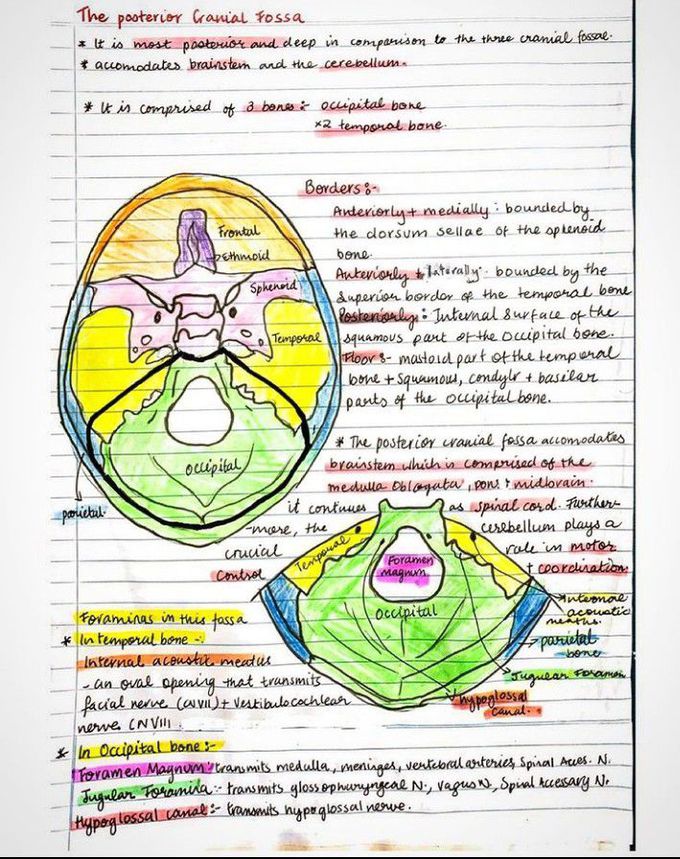 The posterior Cranial Fossa
* It is most posterior and deep in comparison to the three cranial fossae.
* accomodates brainstem and the cerebellum.
* It is comprised of 3 bones:- occipital bone
x2 temporal bone.
Borders:-
Anteriorly + medially: bounded by
the dorsum sellae of the sphenoid
bone.
Anteriorly + laterally: bounded by the
Superior border of the temporal bone
Posteriorly: Internal Surface of the
squamous part of the Occipital bone.
Floor:- mastoid part of the temporal
bone + Squamous, condylr + basilar
parts of the occipital bone.
Frontal
ethmoid
Sphenoid
Temporal
Occipital
parietal.
* The posterior cranial fossa accomodates
brainstem which is comprised of the
medulla Oblongata, pons + midbrain.
it continues as spinal cord. Further-
-more, the cerebellum plays a
crucial role in motor
control + coordination
Temporal
Foramen
magnum
Occipital
Internal
acoustic
meatus.
parietal
bone
Jugular Foramen
hypoglossal
canal.
Foraminas in this fossa
* In temporal bone -:
Internal acoustic meatus
- an oval opening that transmits
facial nerve (CNVII) + Vestibulocochlear
nerve CNVIII.
* In Occipital bone:-
Foramen Magnum: transmits medulla, meninges, vertebral arteries, Spinal Acces. N.
Jugular Foramina:- transmits glossopharyngeal N., vagus N., Spinal Accessary N.
Hypoglossal canal:- transmits hypoglossal nerve.